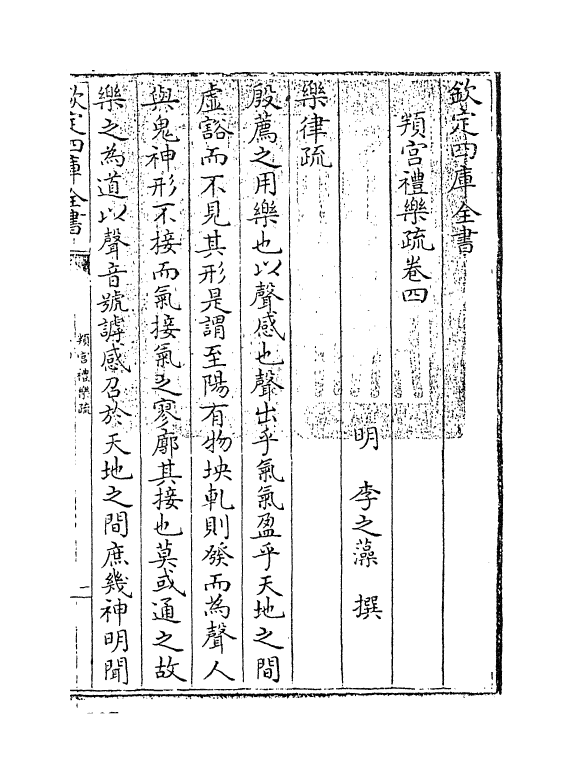 欽定四庫全書
頖宮禮樂疏卷四
明 李之藻 撰
樂律疏
殷薦之用樂也以聲感也聲出乎氣氣盈乎天地之間
虛谿而不見其形是謂至陽有物坱軋則發而為聲人
與鬼神形不接而氣接氣之寥廓其接也莫或通之故
樂之為道以聲音號謼感召於天地之間庶幾神明聞
欽定四庫全書
頖宮禮樂疏